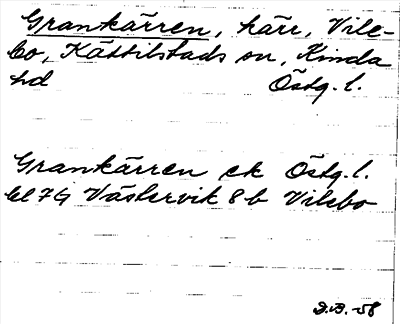 Grankärren, kärr, Vile-
bo, Kättilstads sn, Kinda
hd Östg. l.
Grankärren ek Östg. l.
bl 7G Västervik 8b Vilebo
D.B. -58